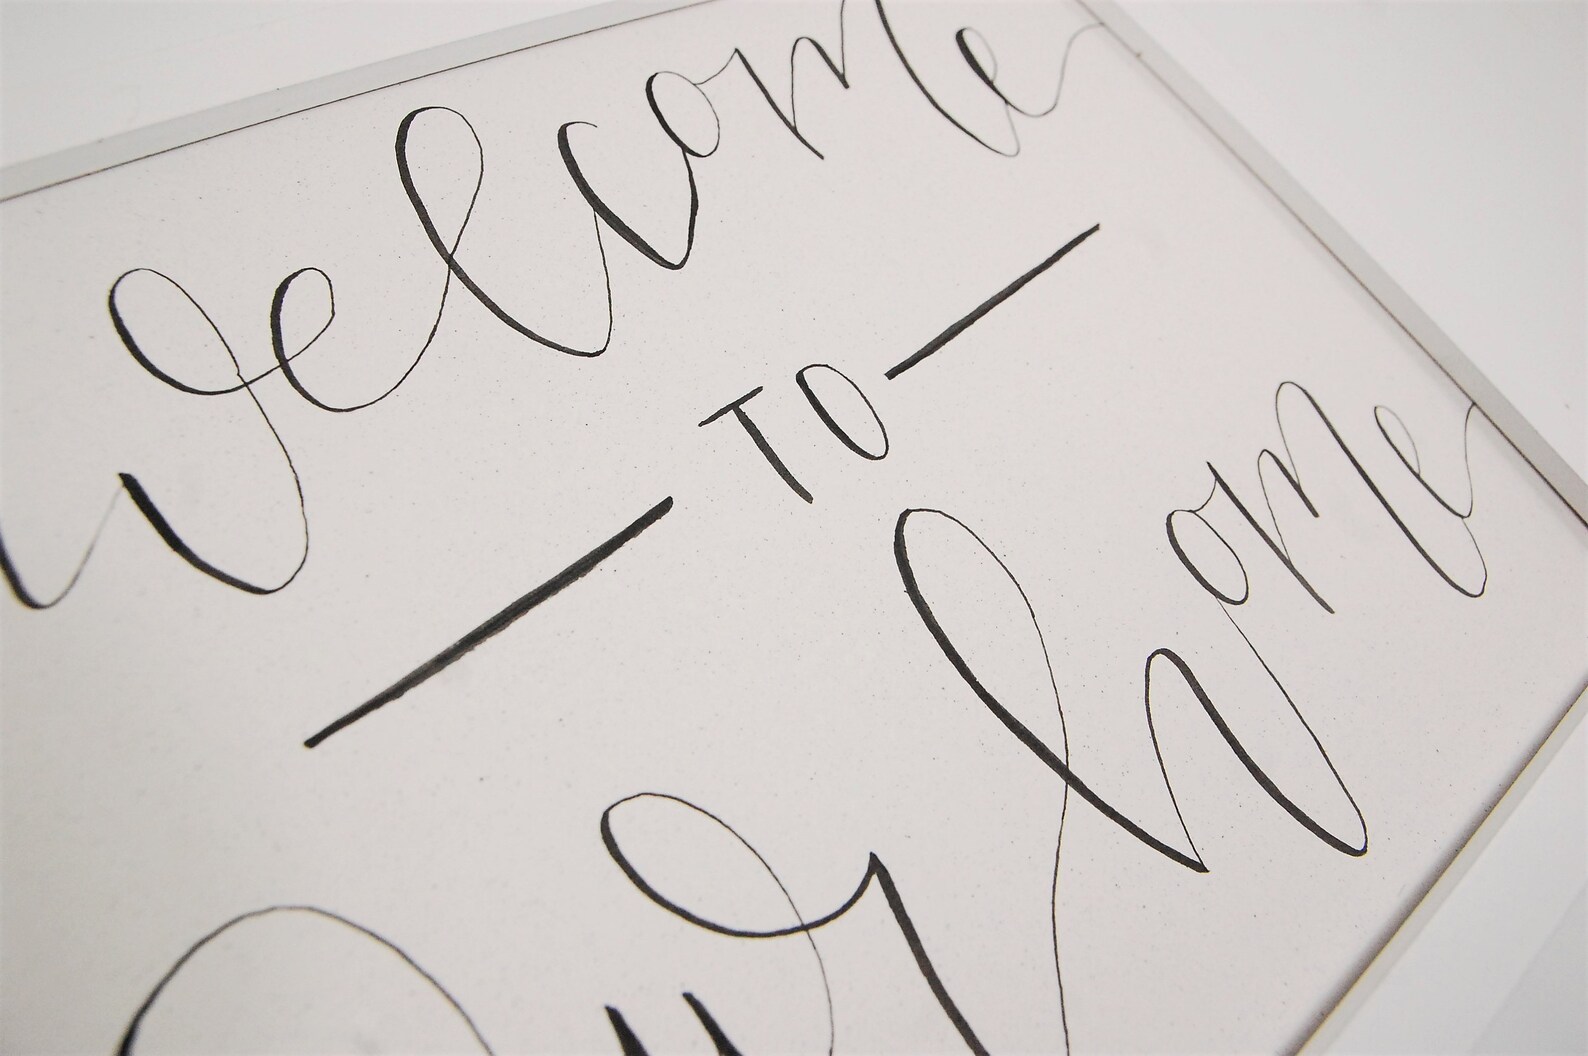 welcome
TO
our home